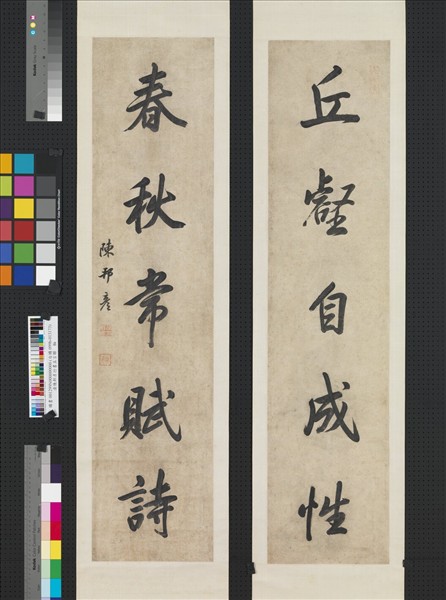 丘壑自成性
春秋常賦詩
陳邦彥